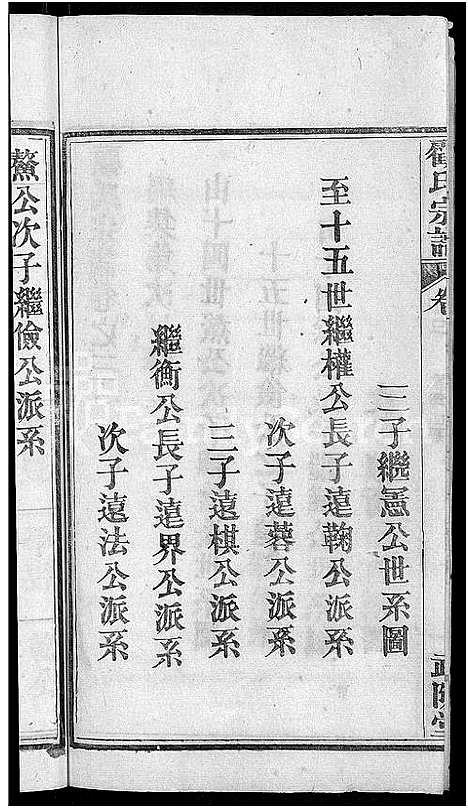 霍氏宗譜
卷
三子繼憲公世系圖
至十五世繼權公長子遠鞠公派系
次子遠蓉公派系
三子遠棋公派系
繼衡公長子遠界公派系
次子遠法公派系
鰲公次子繼儉公派系